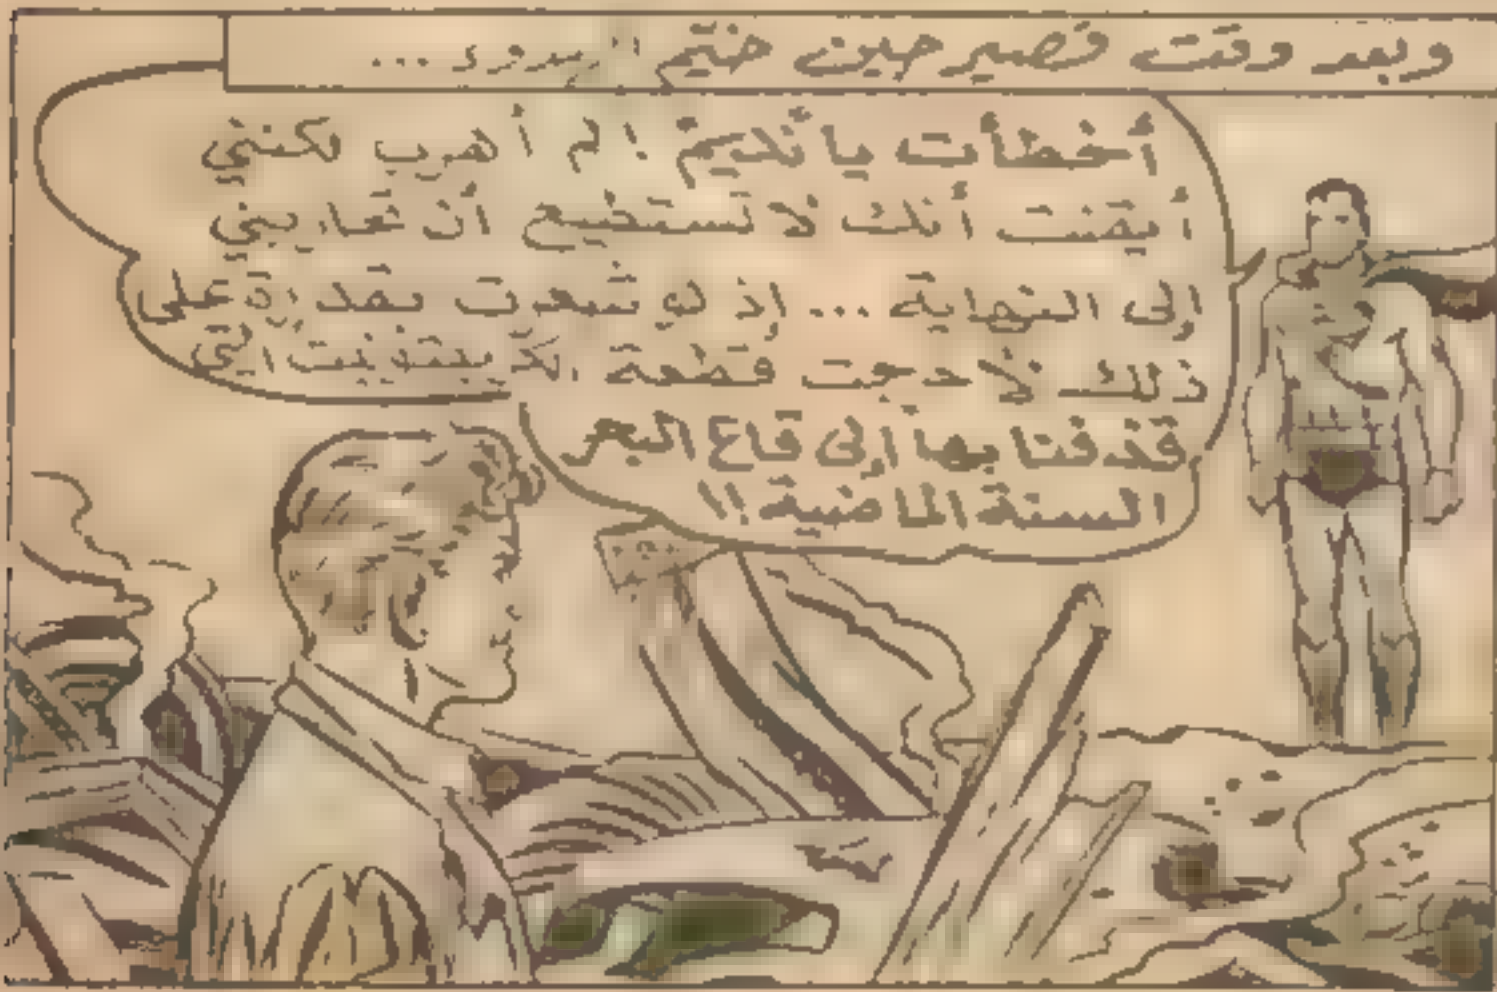 وبعد وقت قصير حين خيّم ...
أخطأت يا نديم ! لم أهرب لكنني
أيقنت أنك لا تستطيع أن تحاربني
إلى النهاية ... إذ لو شعرت بقدرة على
ذلك لأحدجت قطعة الكريبتونيت التي
قذفنا بها إلى قاع البحر
السنة الماضية !!